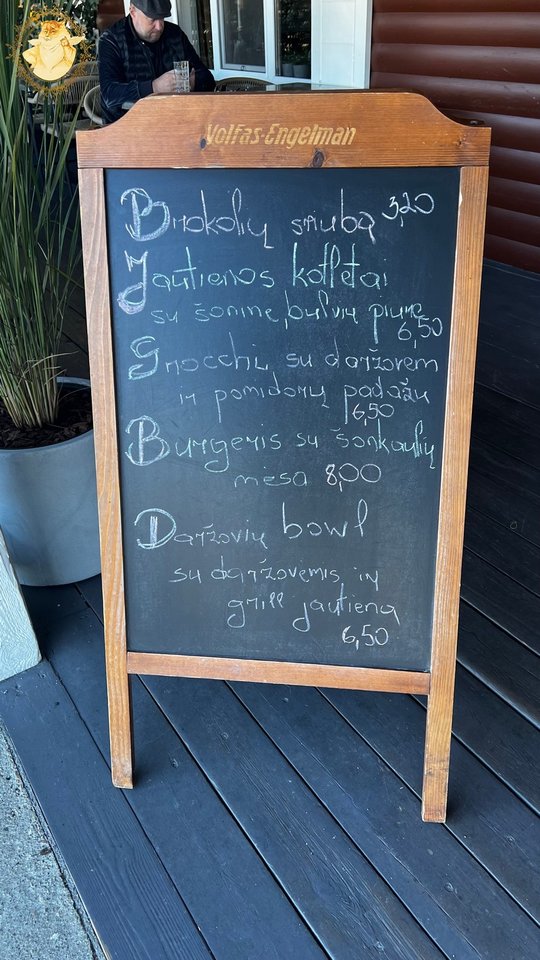 Volfas-Engelman
Brokolių sriuba 3,20
Jautienos kotletai
su šonine, bulvių piure
6,50
Gnocchi su daržovėm
ir pomidorų padažu
6,50
Burgeris su šonkaulių
mėsa 8,00
Daržovių bowl
su daržovėmis ir
grill jautiena
6,50